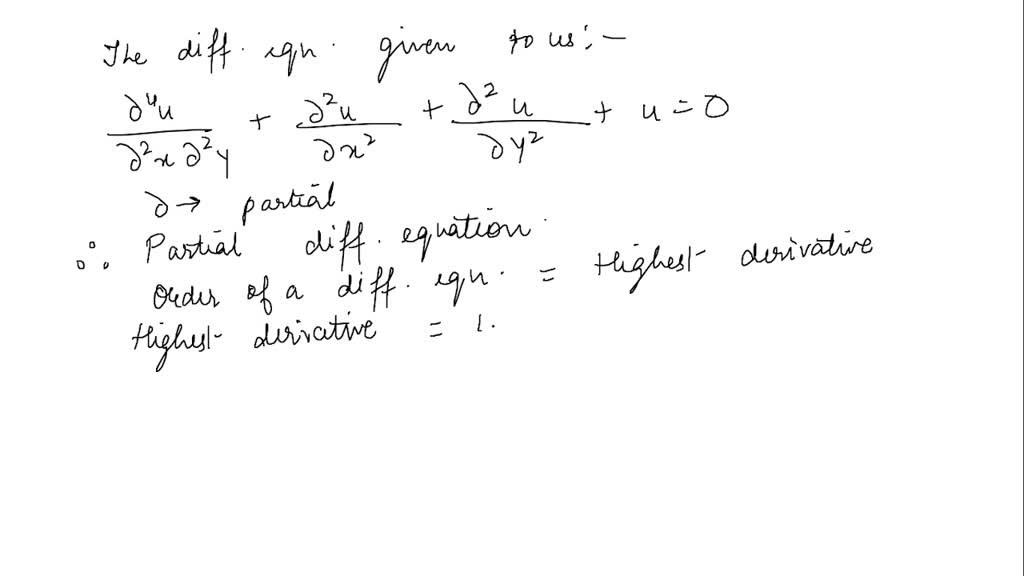 The diff. eqn. given to us:-
∂⁴u/∂²x∂²y + ∂²u/∂x² + ∂²u/∂y² + u = 0
∂ → partial
∴ Partial diff. equation.
Order of a diff. eqn. = Highest derivative
Highest derivative =